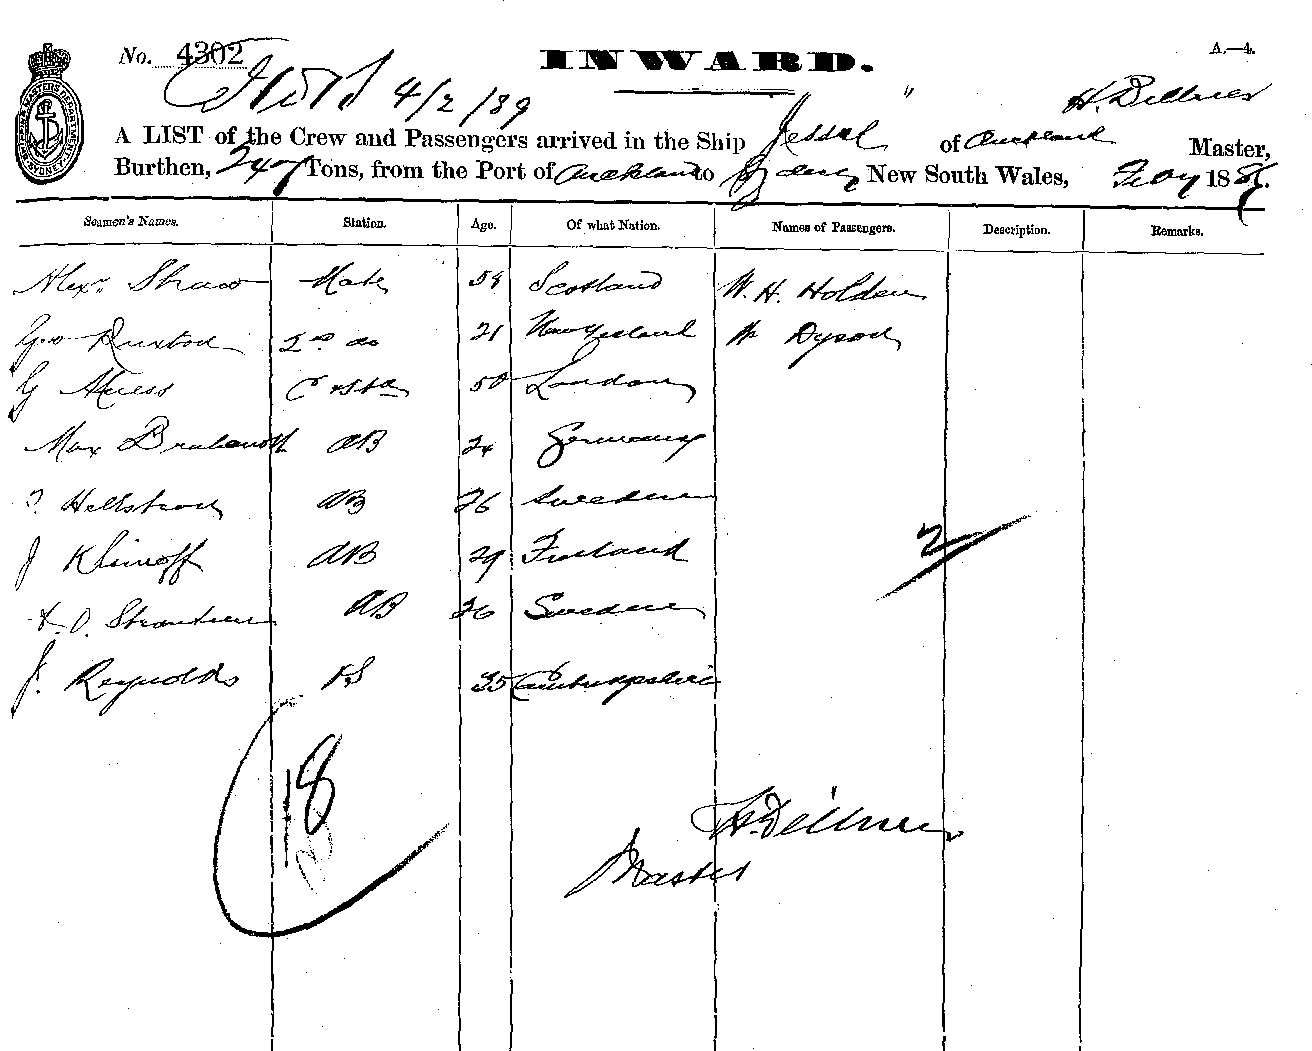 No. 4302
INWARD.
A.—4.
4/2/89
H. Dillner
A LIST of the Crew and Passengers arrived in the Ship Jessel of Auckland Master,
Burthen, 247 Tons, from the Port of Auckland to Sydney New South Wales, Feby 1889.
Seamen's Names. Station. Age. Of what Nation. Names of Passengers. Description. Remarks.
Alexr. Shaw Mate 54 Scotland W. H. Holden
Geo Ruxton 2nd do 21 New Zealand Dyson
G 50 London
Max AB 24 Germany
Hellstrom AB 26 Sweden
J Klimoff AB 29 Finland
O. AB 26 Sweden
J. Reynolds 35 Cambridgeshire
2
8
H. Dillner
Master